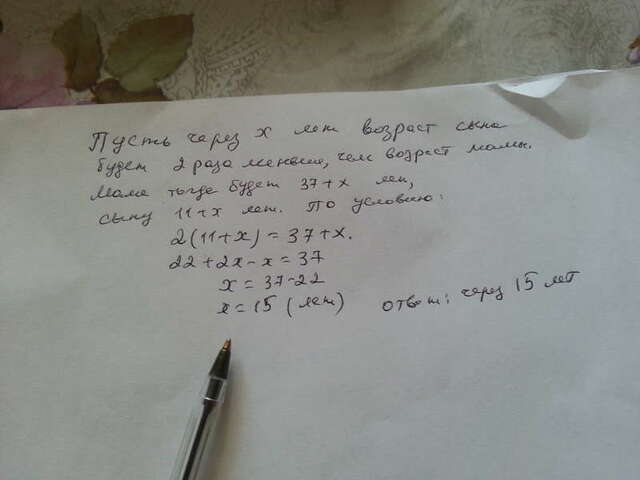 Пусть через x лет возраст сына
будет 2 раза меньше, чем возраст мамы.
Маме тогда будет 37+x лет,
сыну 11+x лет. По условию:
2(11+x) = 37+x.
22+2x-x = 37
x = 37-22
x = 15 (лет) ответ: через 15 лет